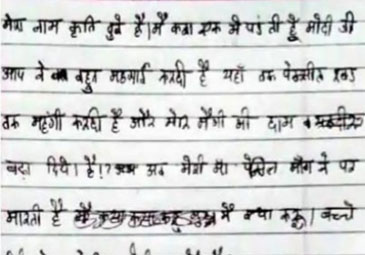 मेरा नाम कृति दुबे है।मै कक्षा एक मे पड़ ती हूँ मोदी जी
आप ने बहुत महगाई करदी है यहाँ तक पेन्सील रबड़
तक महंगी करदी है और मेरि मैगी की दाम
बड़ा दिये। है।? अब मेरी मा पेंसिल माँगने पर
मारती है मैं क्या करू। बच्चे